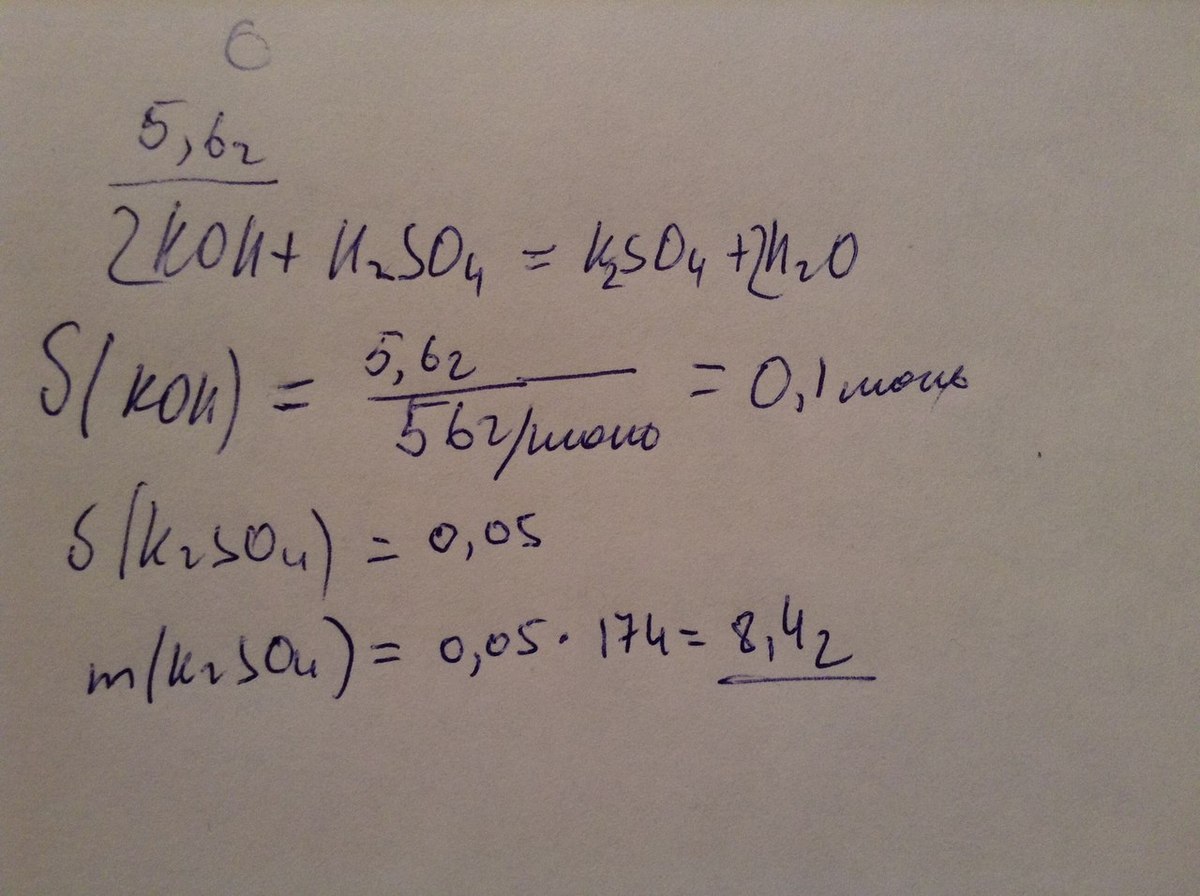 6
5,6г
2KOH + H₂SO₄ = K₂SO₄ + 2H₂O
δ(KOH) = 5,6г / 56г/моль = 0,1 моль
δ(K₂SO₄) = 0,05
m(K₂SO₄) = 0,05 · 174 = 8,4г